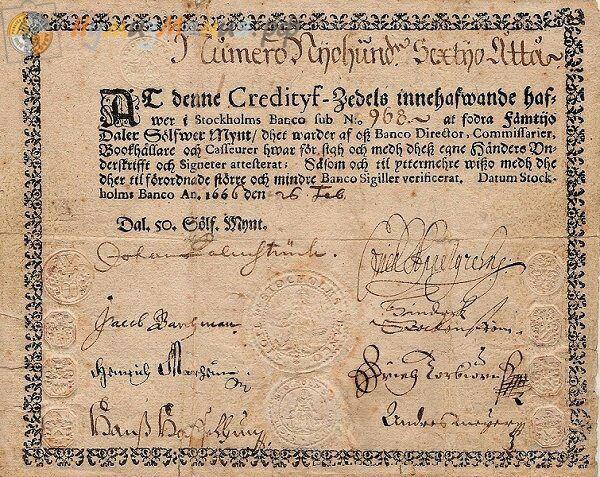 Numero Nijohundr Sextijo Åtta
AT denne Credityf-Zedels innehafwande haf-
wer i Stockholms Banco sub No. 968. at fodra Fämtijo
Daler Sölfwer Mynt/ dhet warder af oß Banco Director, Commissarier,
Bookhållare och Casseurer hwar för sigh och medh deß egne Händers Vn-
derskrifft och Signeter attesterat: Såsom och til yttermehre wißo medh dhe
dher til förordnade större och mindre Banco Sigiller verificerat. Datum Stock-
holms Banco An. 1666 den 26 Feb
Dal. 50. Sölf. Mynt.
Johan Palmstruck.
Jacob Barchman.
Hendrich
Hanß
Andres meyer